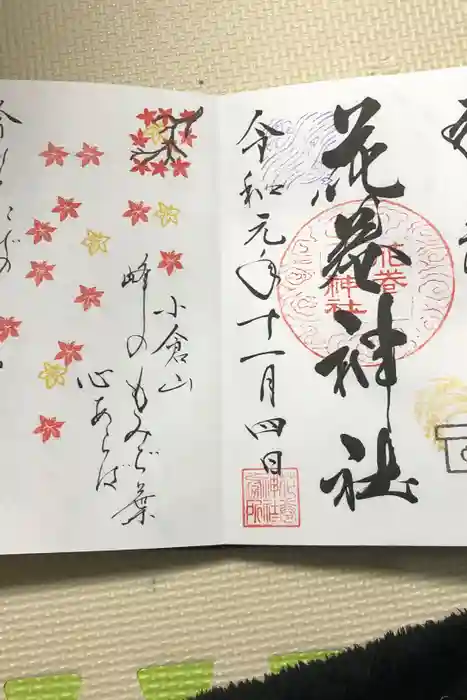 花巻神社
花巻
神社
令和元年十一月四日
小倉山
峰のもみぢ葉
心あらば